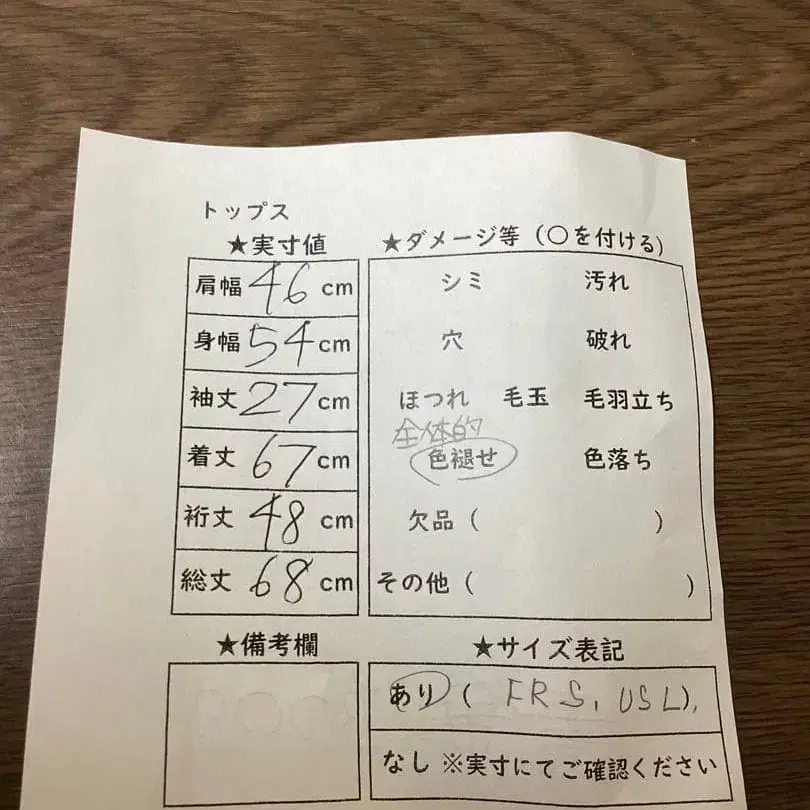 トップス
★実寸値
肩幅 46 cm
身幅 54 cm
袖丈 27 cm
着丈 67 cm
裄丈 48 cm
総丈 68 cm
★ダメージ等(〇を付ける)
シミ 汚れ
穴 破れ
ほつれ 毛玉 毛羽立ち
全体的
色褪せ 色落ち
欠品( )
その他( )
★備考欄
★サイズ表記
あり( FR S, US L),
なし ※実寸にてご確認ください